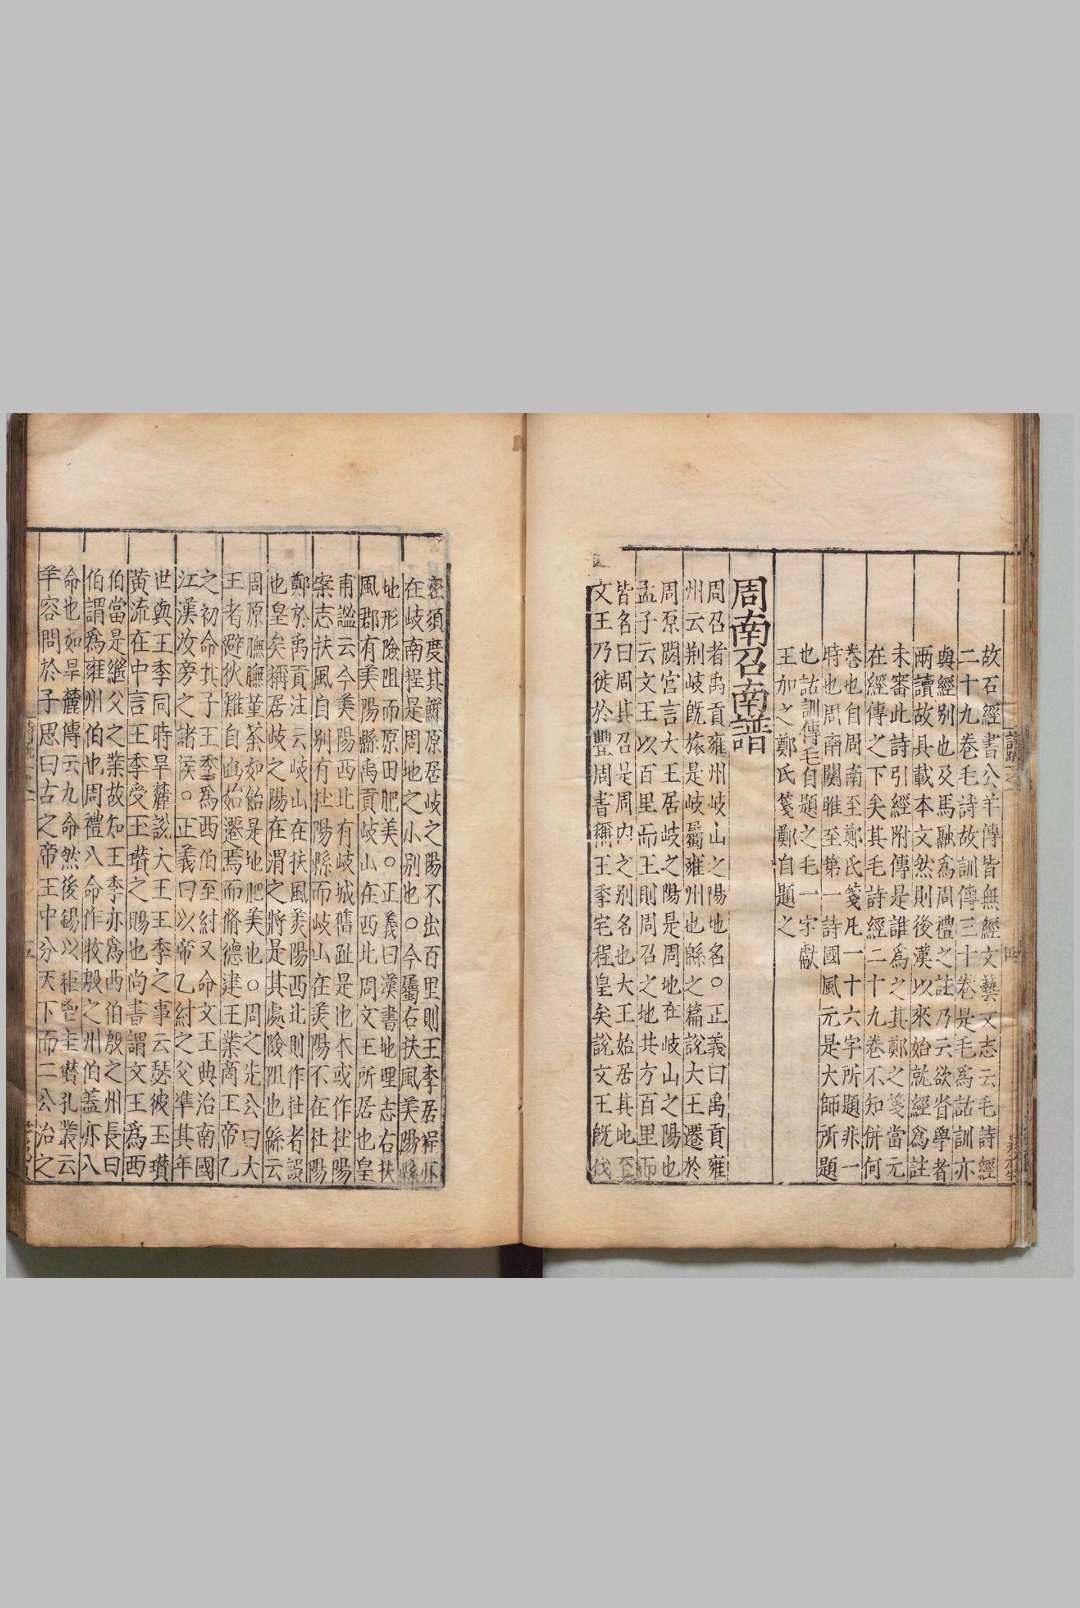 故石經書公羊傳皆無經文藝文志云毛詩經
二十九卷毛詩故訓傳三十卷是毛爲詁訓亦
與經別也及馬融爲周禮之註乃云欲省學者
兩讀故具載本文然則後漢以來始就經爲註
未審此詩引經附傳是誰爲之其鄭之箋當元
在經傳之下矣其毛詩經二十九卷不知併何
卷也自周南至鄭氏箋凡一十六字所題非一
時也周南關雎至第一詩國風元是大師所題
也詁訓傳毛自題之毛一字獻
王加之鄭氏箋鄭自題之
周南召南譜
周召者禹貢雍州岐山之陽地名○正義曰禹貢雍
州云荆岐既旅是岐屬雍州也緜之篇說大王遷於
周原閟宮言大王居岐之陽是周地在岐山之陽也
孟子云文王以百里而王則周召之地共方百里而
皆名曰周其召是周內之別名也大王始居其地至
文王乃徙於豐周書稱王季宅程皇矣說文王既伐
密須度其鮮原居岐之陽不出百里則王季居程亦
在岐南程是周地之小別也○今屬右扶風美陽縣
地形險阻而原田肥美○正義曰漢書地理志右扶
風郡有美陽縣禹貢岐山在西北周文王所居也皇
甫謐云今美陽西北有岐城舊趾是也本或作杜陽
案志扶風自別有杜陽縣而岐山在美陽不在杜陽
鄭於禹貢注云岐山在扶風美陽西北則作杜者誤
也皇矣稱居岐之陽在渭之將是其處險阻也緜云
周原膴膴堇荼如飴是地肥美也○周之先公曰大
王者避狄難自豳始遷焉而脩德建王業商王帝乙
之初命其子王季爲西伯至紂又命文王典治南國
江漢汝旁之諸侯○正義曰以帝乙紂之父準其年
世與王季同時旱麓說大王王季之事云瑟彼玉瓚
黃流在中言王季受玉瓚之賜也尚書謂文王爲西
伯當是繼父之業故知王季亦爲西伯殷之州長曰
伯謂爲雍州伯也周禮八命作牧殷之州伯蓋亦八
命也如旱麓傳云九命然後錫以秬鬯圭瓚孔叢云
羊容問於子思曰古之帝王中分天下而二公治之